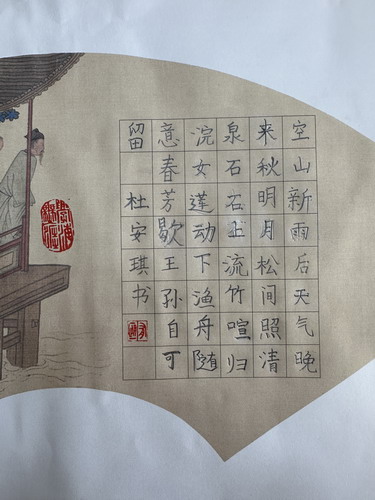 空山新雨后天气晚
来秋明月松间照清
泉石石上流竹喧归
浣女莲动下渔舟随
意春芳歇王孙自可
留 杜安琪书